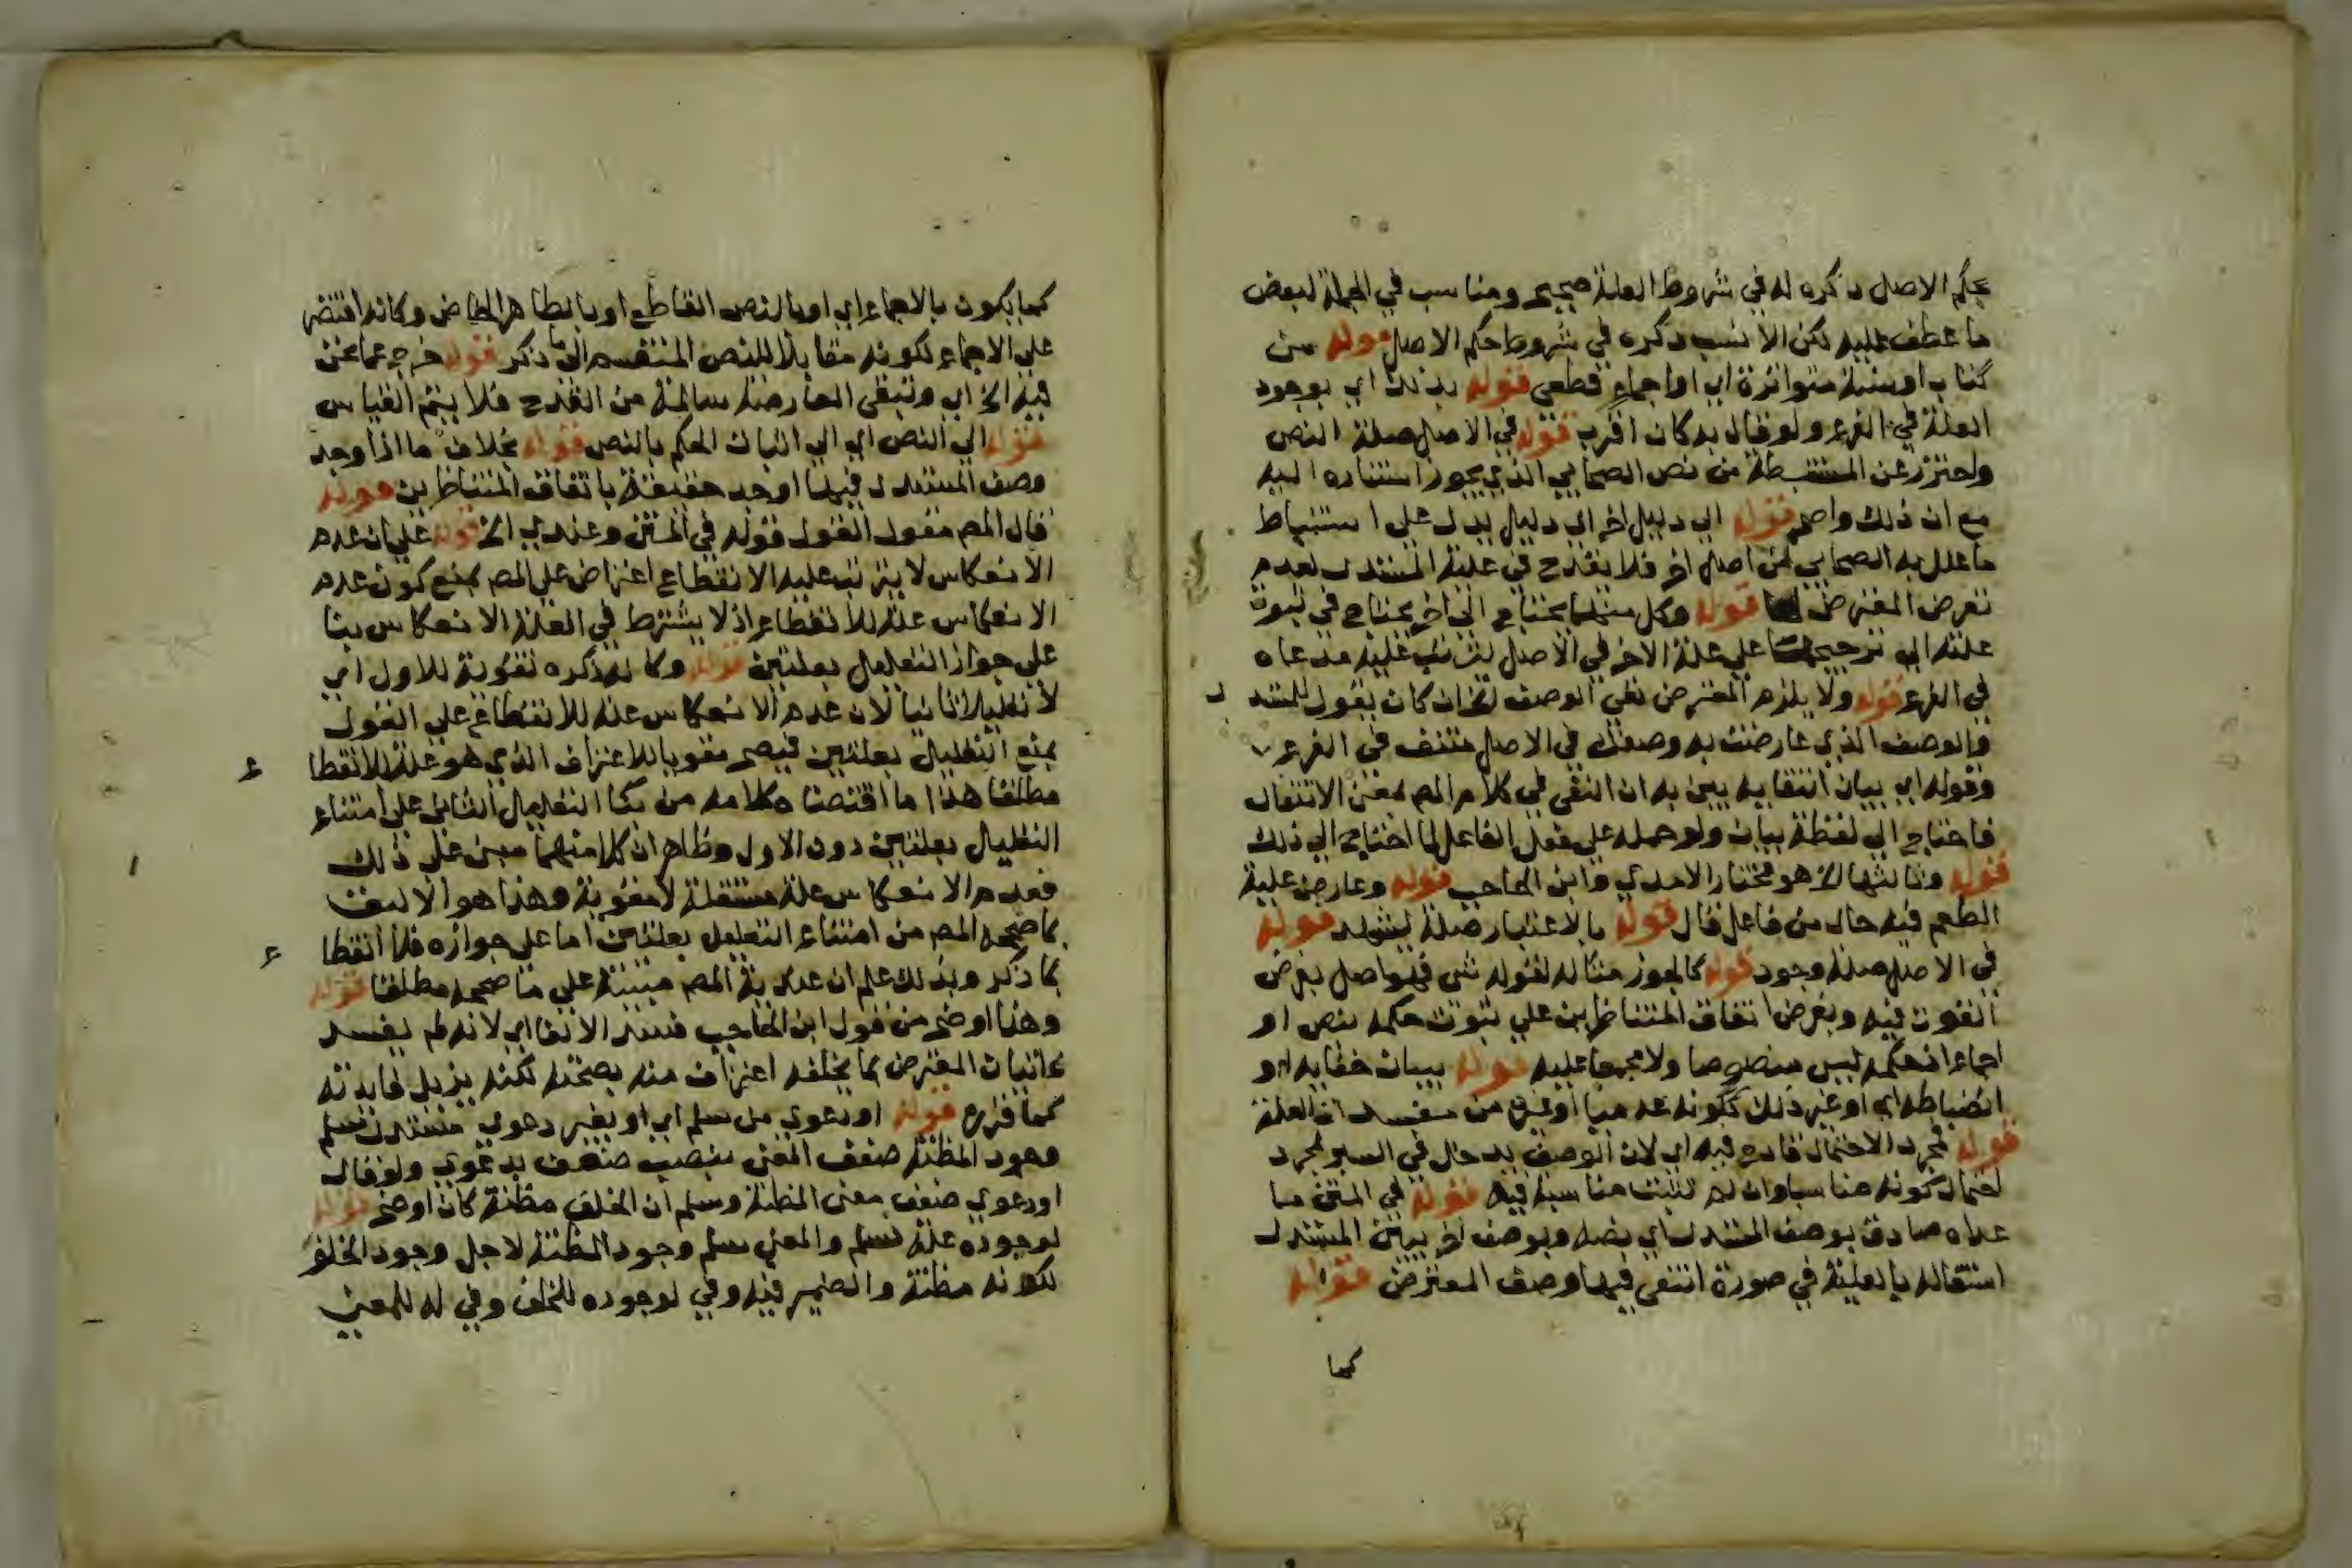 بحكم الاصل ذكره له في شروط العلة صحيح ومناسب في الجملة لبعض
ما عطف عليه لكن الانسب ذكره في شروط حكم الاصل قوله من
كتاب اوسنة متواترة اي او اجماع قطعي قوله بذلك اي بوجود
العلة في الفرع ولو قال به كان اقرب قوله في الاصل صلة النص
واحترز عن المستنبطة من نص الصحابي الذي يجوز استناده اليه
مع ان ذلك واضح قوله الي دليل اخر اي دليل يدل علي استنباط
ما علل به الصحابي من اصل اخر فلا يقدح في علية المستدل لعدم
تعرض المعترض قوله وكل منهما يحتاج الي اخر يحتاج في ثبوت
علته الي ترجيحها علي علة الاخر في الاصل يترتب عليه مدعاه
في الفرع قوله ولا يلزم المعترض نفي الوصف الخ ان كان يقول للمستد ل
والوصف الذي عارضت به وصفك في الاصل منتف في الفرع
وقوله اي بيان انتفايه يبين به ان النفي في كلام المص بمعني الانتفال
فاحتاج الي لفظة بيان ولو حمله علي فعل الفاعل لما احتاج الي ذلك
قوله وثالثها الخ هو مختار الامدي وابن الحاجب قوله وعارض علية
الطعم فيه حال من فاعل قال قوله بالاعتبار صلة يشهد قوله
في الاصل صلة وجود قوله كالجوز مثاله لقوله شي فهو اصل بفرض
القوت فيه وبفرض اتفاق المتناظرين علي ثبوت حكمه بنص او
اجماع اذ حكمه ليس منصوصا ولا مجمعا عليه قوله ببيان خفايه او
انضباطه اي او غير ذلك ككونه عدميا او غيره من مفسدات العلة
قوله لمجرد الاحتمال قادح فيه اي لان الوصف يدخل في السبر لمجرد
احتمال كونه مناسبا وان لم تثبت مناسبة فيه قوله في المتن ما
عداه صادق بوصف المستدل اي بضه وبوصف اخر يبين المستدل
استقلاله بالعلية في صورة انتفي فيها وصف المعترض قوله
كما
كما يكون بالاجماع اي او بالنص القاطع او بالظاهر الخاص وكانه اقتصر
علي الاجماع لكونه مقابلا للنص المنقسم الي ما ذكر قوله خرج عما نحن
فيه الخ اي وتبقي المعارضة سالمة من القدح فلا يتم القياس
قوله الي النص اي الي اثبات الحكم بالنص قوله بخلاف ما اذا وجد
وصف المستدل فيها اوجد حقيقة باتفاق المتناظرين قوله
قال المص مقول القول قوله في المتن وعندي الخ قوله علي ان عدم
الانعكاس لا يترتب عليه الانقطاع اعتراض علي المص بمنع كون عدم
الانعكاس علة للانقطاع اذ لا يشترط في العلة الانعكاس بنا
علي جواز التعليل بعلتين قوله وكانه ذكره تقوية للاول اي
لا تعليلا ثانيا لان عدم الانعكاس علة للانقطاع علي القول
بمنع التعليل بعلتين فيصح مقويا للاعتراف الذي هو علة للانقطا ع
مطلقا هذا ما اقتضاه كلامه من بنا التعليل الثاني علي امتناع
التعليل بعلتين دون الاول وظاهر ان كلا منهما مبني علي ذلك
فعدم الانعكاس علة مستقلة لا مقوية وهذا هو الاليق
بما صححه المص من امتناع التعليل بعلتين اما علي جوازه فلا انقطا ع
بما ذكر وبذلك علم ان عندية المص مبينة علي ما صححه مطلقا قوله
وهذا اوضح من قول ابن الحاجب فسد الالغا اي لانه لم يفسد
باثبات المعترض بما يخلفه اعتراف منه بصحته لكنه يزيل فايدته
كما قرره قوله او دعوي من سلم اي او بغير دعوي مستدل سلم
وجود المظنة ضعف المعني بنصب ضعف بدعوي ولو قال
او دعوي ضعف معني المظنة وسلم ان الخلف مظنة كان اوضح قوله
لوجوده علة لسلم والمعني سلم وجود المظنة لاجل وجود الخلف
لكونه مظنة والضمير فيه وفي لوجوده للخلف وفي له للمعني